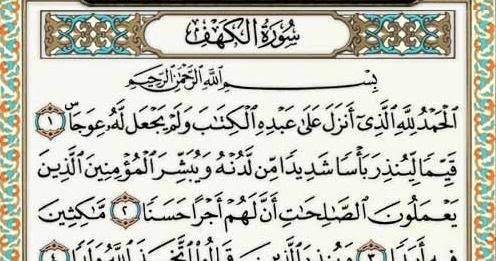 سُورَةُ الْكَهْفِ
بِسْمِ اللَّهِ الرَّحْمَٰنِ الرَّحِيمِ
ٱلْحَمْدُ لِلَّهِ ٱلَّذِىٓ أَنزَلَ عَلَىٰ عَبْدِهِ ٱلْكِتَٰبَ وَلَمْ يَجْعَل لَّهُۥ عِوَجَاۜ ١
قَيِّمًا لِّيُنذِرَ بَأْسًا شَدِيدًا مِّن لَّدُنْهُ وَيُبَشِّرَ ٱلْمُؤْمِنِينَ ٱلَّذِينَ
يَعْمَلُونَ ٱلصَّٰلِحَٰتِ أَنَّ لَهُمْ أَجْرًا حَسَنًا ٢ مَّٰكِثِينَ
فِيهِ أَبَدًا ٣ وَيُنذِرَ ٱلَّذِينَ قَالُوا۟ ٱتَّخَذَ ٱللَّهُ وَلَدًا ٤